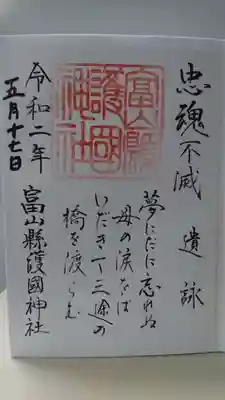 忠魂不滅 遺詠
夢にだに忘れぬ
母の涙をば
いだきて三途の
橋を渡らむ
富山縣護國神社
富山縣護國神社
令和二年
五月十七日